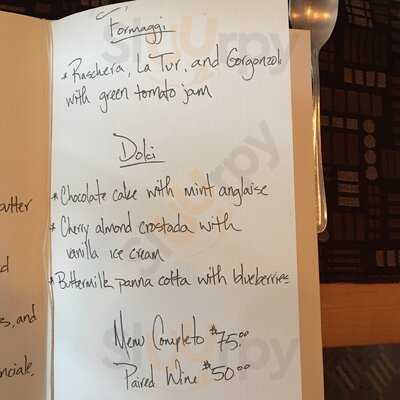 Formaggi
* Raschera, La Tur, and Gorgonzol
with green tomato jam
Dolci
* Chocolate cake with mint anglaise
* Cherry almond crostada with
vanilla ice cream
* Buttermilk panna cotta with blueberries
Menu Completo $75.00
Paired Wine $50.00
utter
d
s, and
nciale.
Sluurpy
Sluurpy
Sluurpy